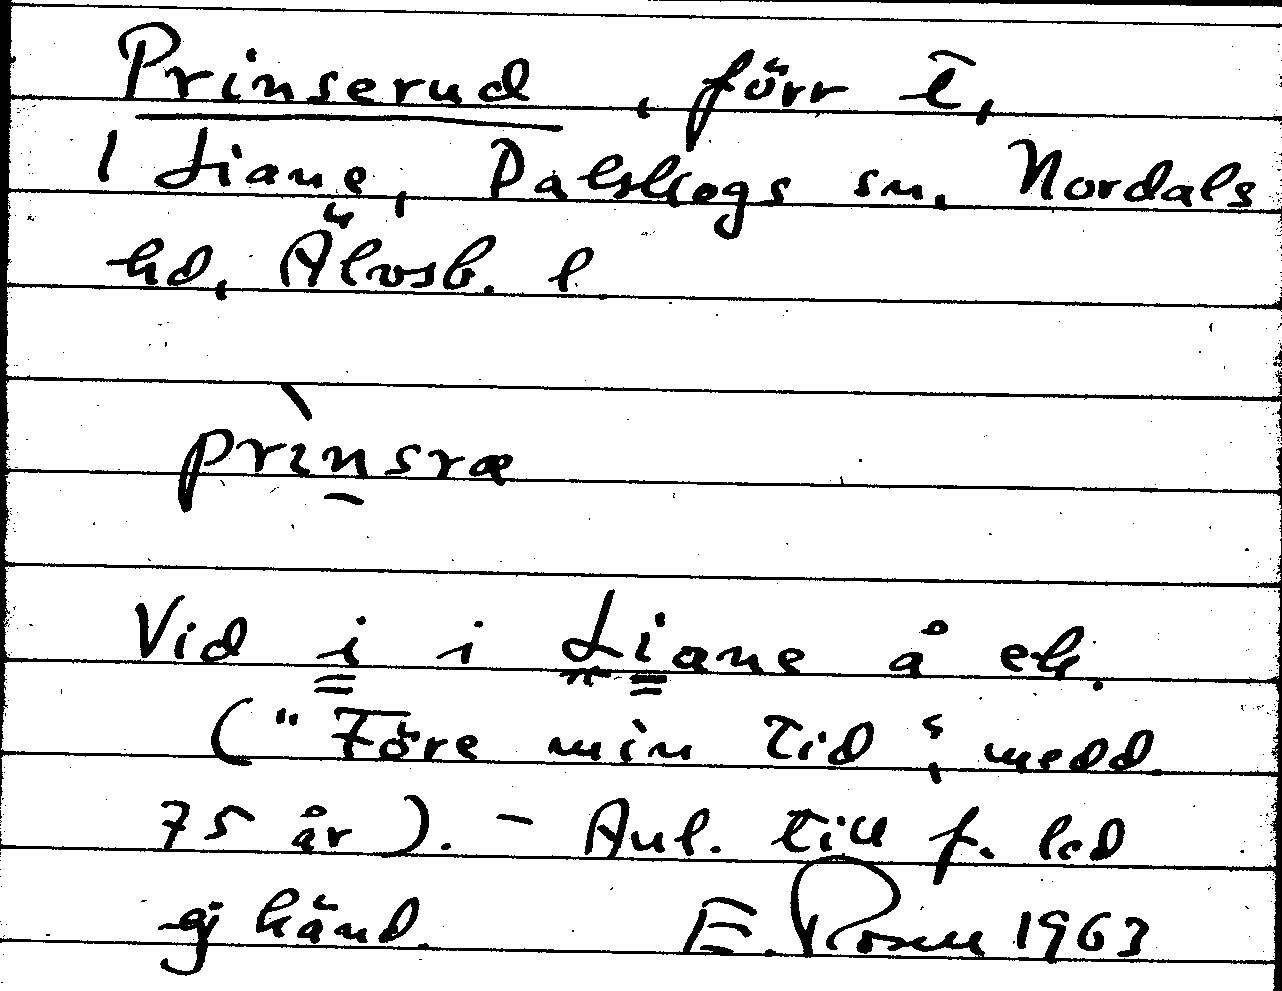 Prinserud, förr t,
1 Liane, Dalskogs sn. Nordals
hd, Älvsb. l.
prìnsræ
Vid i i Liane å ek.
("Före min tid", medd.
75 år). - Anl. till f. led
ej känd. E. Rosen 1963